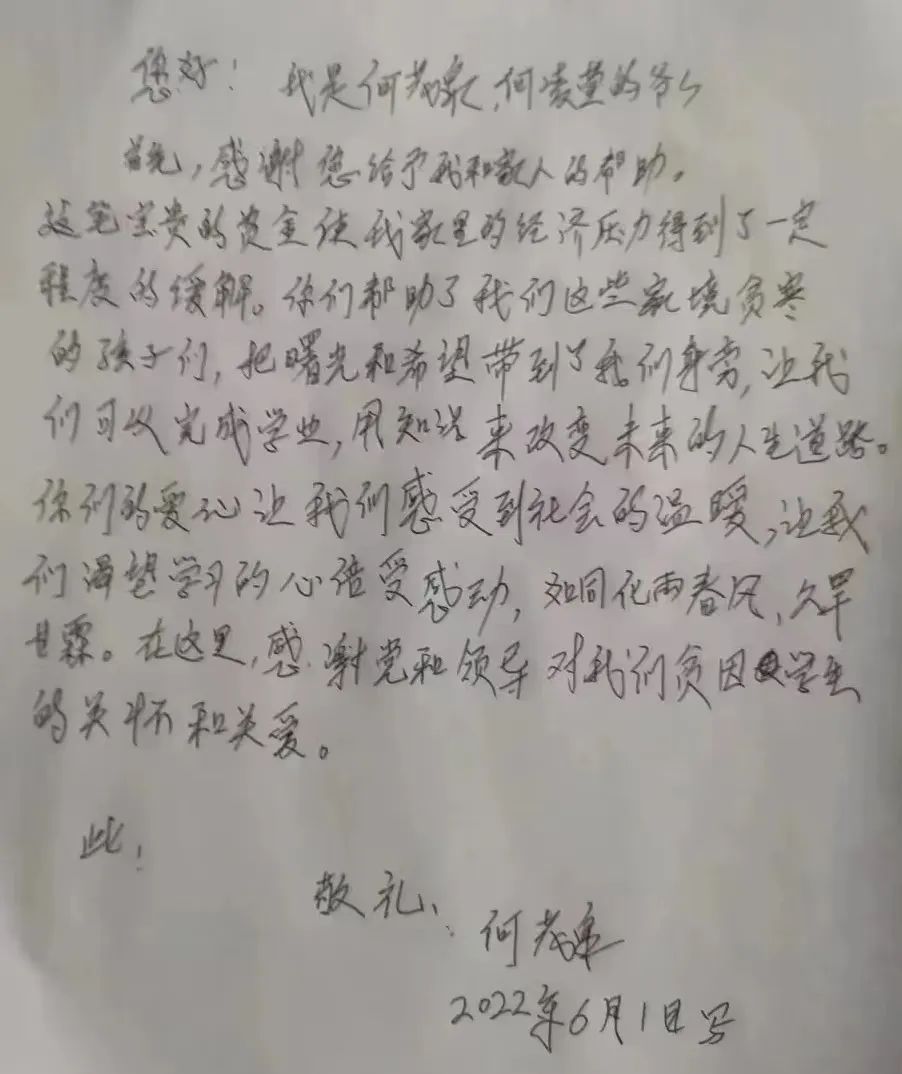 您好! 我是何茂泉,何凌萱的爷々
首先,感谢您给予我和家人的帮助。
这笔宝贵的资金使我家里的经济压力得到了一定
程度的缓解。你们帮助了我们这些家境贫寒
的孩子们,把曙光和希望带到了我们身旁,让我
们可以完成学业,用知识来改变未来的人生道路。
你们的爱心让我们感受到社会的温暖,让我
们渴望学习的心倍受感动,如同化雨春风,久旱
甘霖。在这里,感谢党和领导对我们贫困学生
的关怀和关爱。
此!
敬礼、
何茂泉
2022年6月1日写